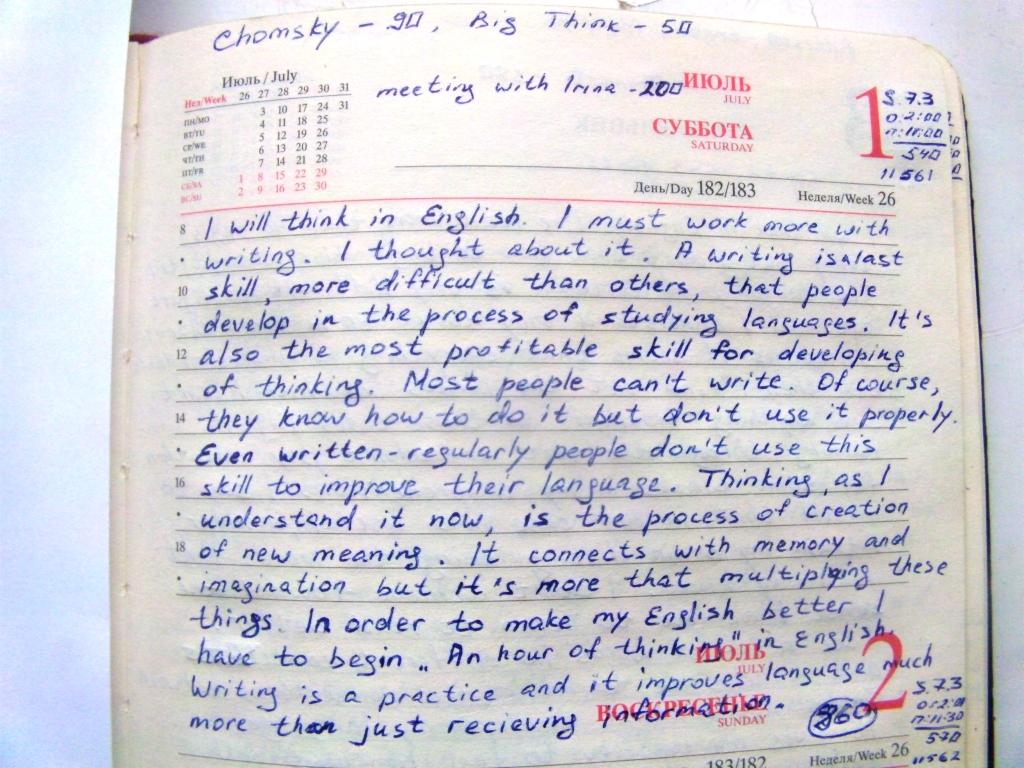 Chomsky - 90, Big Think - 50
meeting with Irina - 200
Июль / July
Нед/Week 26 27 28 29 30 31
ПН/MO 3 10 17 24 31
ВТ/TU 4 11 18 25
СР/WE 5 12 19 26
ЧТ/TH 6 13 20 27
ПТ/FR 7 14 21 28
СБ/SA 1 8 15 22 29
ВС/SU 2 9 16 23 30
ИЮЛЬ
JULY
СУББОТА
SATURDAY
1
S. 7.3
0. 2:00
540
11561
День/Day 182/183
Неделя/Week 26
8 I will think in English. I must work more with
writing. I thought about it. A writing is a last
10 skill, more difficult than others, that people
develop in the process of studying languages. It's
12 also the most profitable skill for developing
of thinking. Most people can't write. Of course,
14 they know how to do it but don't use it properly.
Even written-regularly people don't use this
16 skill to improve their language. Thinking, as I
understand it now, is the process of creation
18 of new meaning. It connects with memory and
imagination but it's more that multiplying these
things. In order to make my English better I
have to begin „An hour of thinking" in English.
Writing is a practice and it improves language much
more than just recieving information. 860
ИЮЛЬ
JULY
ВОСКРЕСЕНЬЕ
SUNDAY
2
S. 7.3
570
11562
183/182
Неделя/Week 26